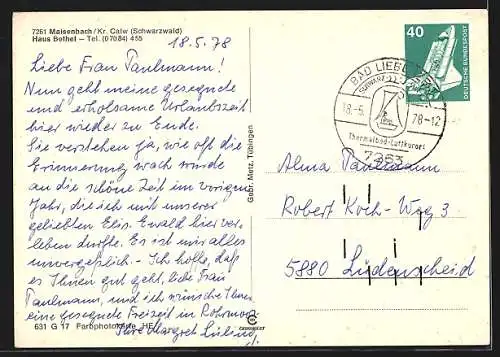 7261 Maisenbach/Kr. Calw (Schwarzwald)
Haus Bethel – Tel. (0 70 84) 455
18.5.78
Liebe Frau Paulmann!
Nun geht meine gesegnete
und erholsame Urlaubszeit
hier wieder zu Ende.
Sie verstehen ja, wie oft die
Erinnerung wach wurde
an die schöne Zeit im vorigen
Jahr, die ich mit unserer
geliebten Elis. Ewald hier ver-
leben durfte. Es ist mir alles
unvergeßlich. – Ich hoffe, daß
es Ihnen gut geht, liebe Frau
Paulmann, und ich wünsche Ihnen
eine gesegnete Freizeit in
Ihre Margret
631 G 17 Farbphotokarte HE
Gebr. Metz, Tübingen
40
DEUTSCHE BUNDESPOST
BAD LIEBENZELL
18.-5. 78-12
Thermalbad-Luftkurort
7263
Alma Paulmann
Robert Koch-Weg 3
5880 Lüdenscheid